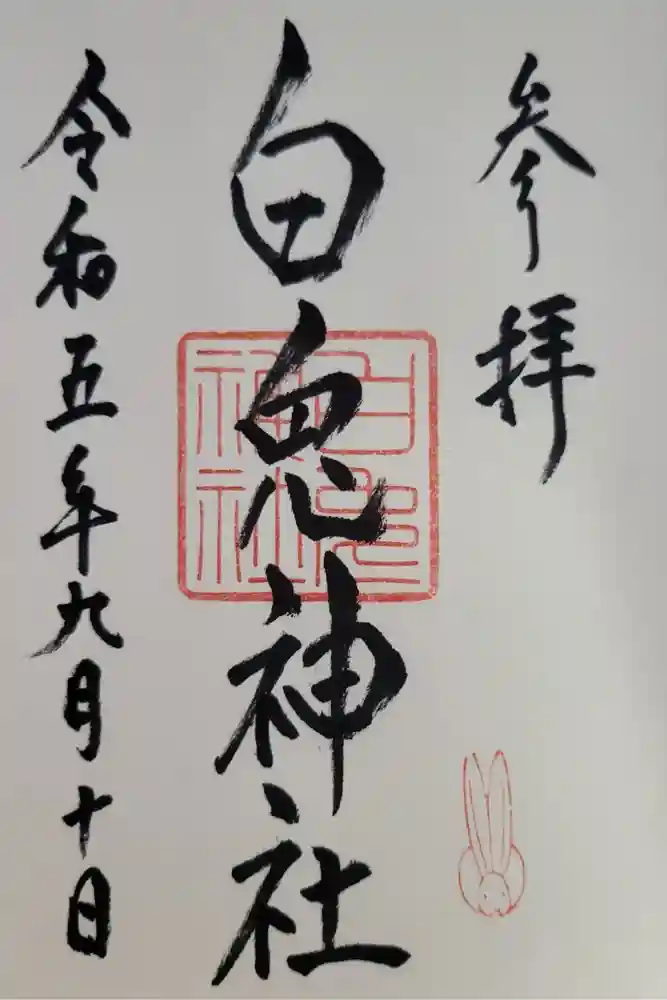 参拝
白兎神社
白兎神社
令和五年九月十日